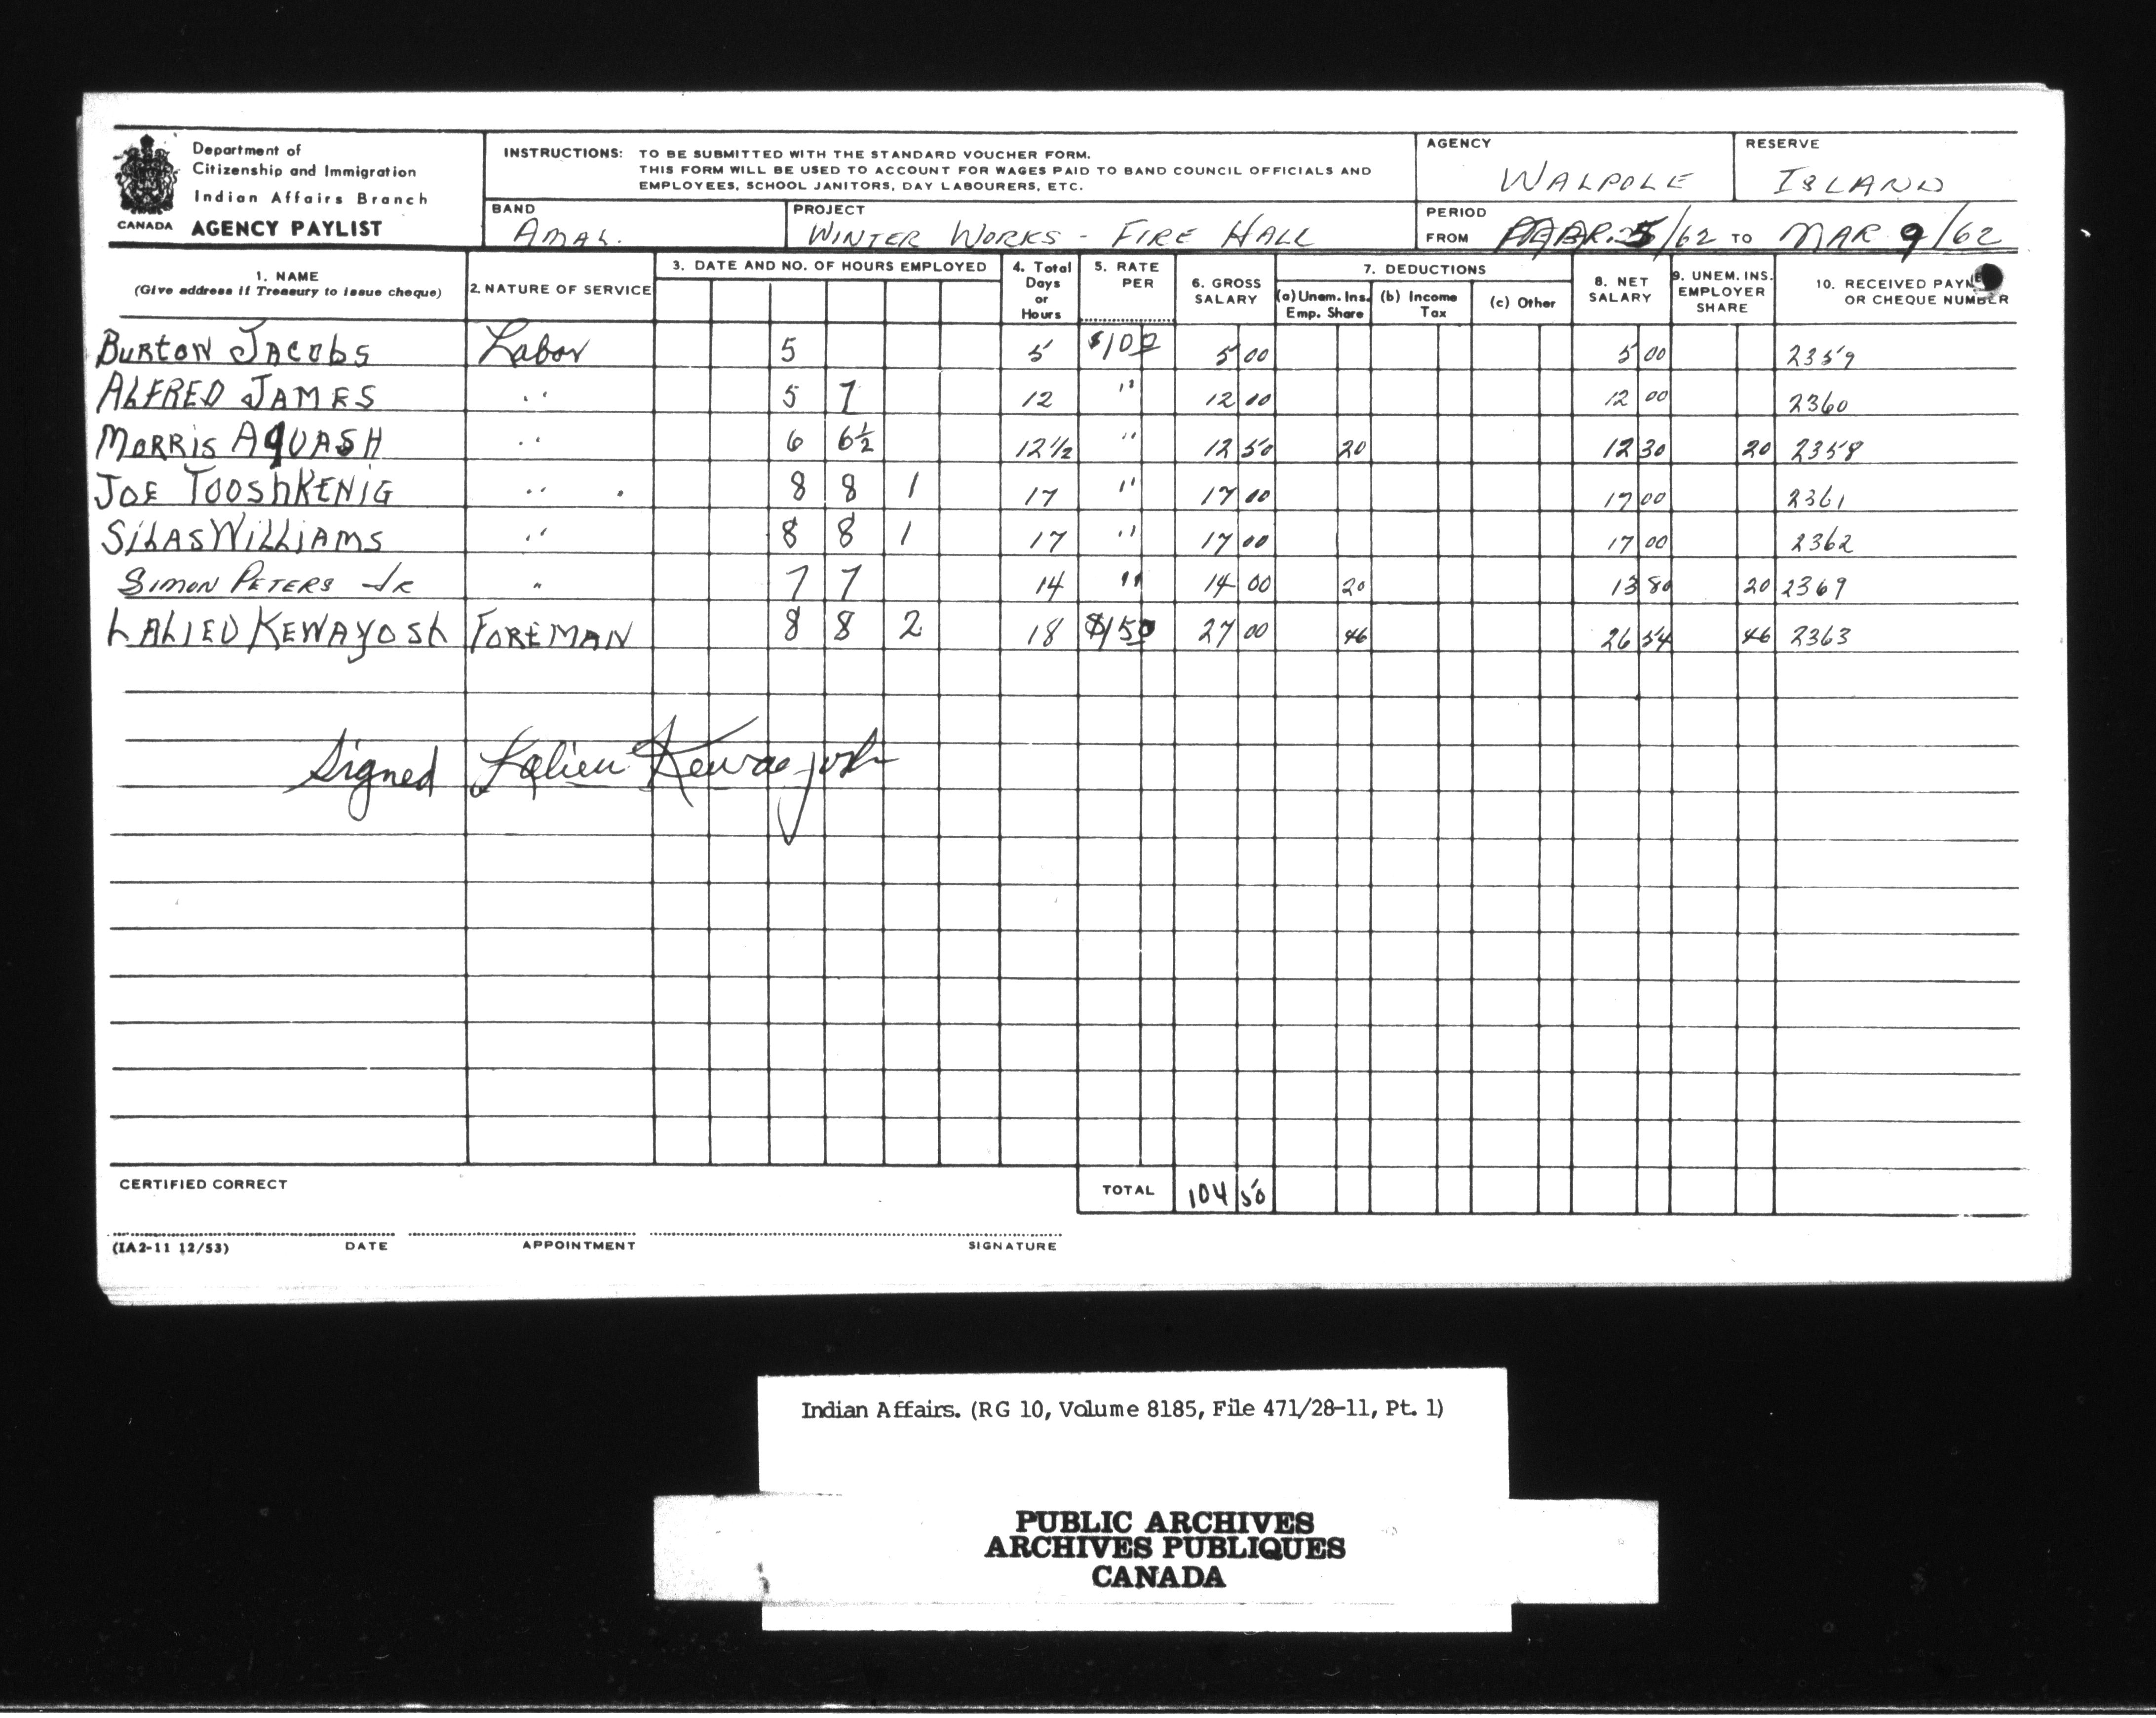 Department of
Citizenship and Immigration
Indian Affairs Branch
CANADA AGENCY PAYLIST
INSTRUCTIONS: TO BE SUBMITTED WITH THE STANDARD VOUCHER FORM.
THIS FORM WILL BE USED TO ACCOUNT FOR WAGES PAID TO BAND COUNCIL OFFICIALS AND
EMPLOYEES, SCHOOL JANITORS, DAY LABOURERS, ETC.
AGENCY WALPOLE
RESERVE ISLAND
BAND AMAL.
PROJECT WINTER WORKS - FIRE HALL
PERIOD
FROM 5/62 TO MAR 9/62
1. NAME
(Give address if Treasury to issue cheque)
2. NATURE OF SERVICE
3. DATE AND NO. OF HOURS EMPLOYED
4. Total Days or Hours
5. RATE PER
6. GROSS SALARY
7. DEDUCTIONS
(a) Unem. Ins. Emp. Share
(b) Income Tax
(c) Other
8. NET SALARY
9. UNEM. INS. EMPLOYER SHARE
10. RECEIVED
OR CHEQUE NUMBER
BURTON JACOBS Labor 5 5 $1 00 5 00 5 00 2359
ALFRED JAMES " 5 7 12 " 12 00 12 00 2360
MORRIS AQUASH " 6 6½ 12 1/2 " 12 50 20 12 30 20 2358
JOE TOOSHKENIG " 8 8 1 17 " 17 00 17 00 2361
SILAS WILLIAMS " 8 8 1 17 " 17 00 17 00 2362
SIMON PETERS JR " 7 7 14 " 14 00 20 13 80 20 2369
LALIED KEWAYOSH FOREMAN 8 8 2 18 $1 50 27 00 46 26 54 46 2363
Signed Lalien Kewayosh
CERTIFIED CORRECT
TOTAL 104 50
(IA2-11 12/53) DATE APPOINTMENT SIGNATURE
Indian Affairs. (RG 10, Volume 8185, File 471/28-11, Pt. 1)
PUBLIC ARCHIVES
ARCHIVES PUBLIQUES
CANADA